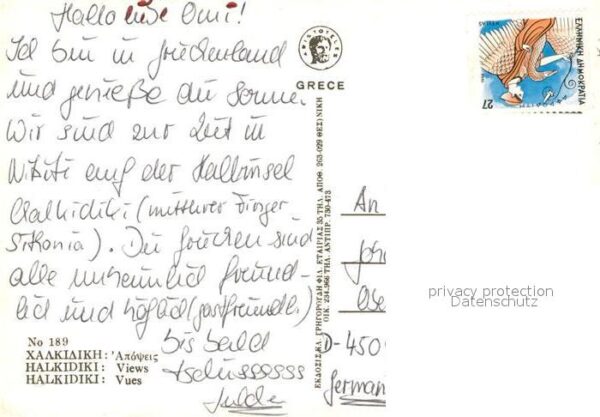 Hallo liebe Omi!
Ich bin in Griechenland
und genieße die Sonne.
Wir sind zur Zeit in
Nikiti auf der Halbinsel
Chalkidiki (mittlerer Finger
Sithonia). Die Griechen sind
alle unheimlich freund-
lich und höflich (gastfreundl.)
bis bald
tschüsssssss
No 189
ΧΑΛΚΙΔΙΚΗ: Ἀπόψεις
HALKIDIKI: Views
HALKIDIKI: Vues
ARISTOTELES
GRECE
ΕΚΔΟΣΙΣ ΚΛ. ΓΡΗΓΟΡΟΥΔΗ ΦΙΛ. ΕΤΑΙΡΙΑΣ 35 ΤΗΛ. ΑΠΟΘ. 253-029 ΘΕΣ)ΝΙΚΗ
ΟΙΚ. 234-966 ΤΗΛ. ΑΝΤΙΠΡ. 730-473
ΕΛΛΗΝΙΚΗ ΔΗΜΟΚΡΑΤΙΑ
HELLAS
ΑΦΡΟΔΙΤΗ
27
An
D-450
German
privacy protection
Datenschutz